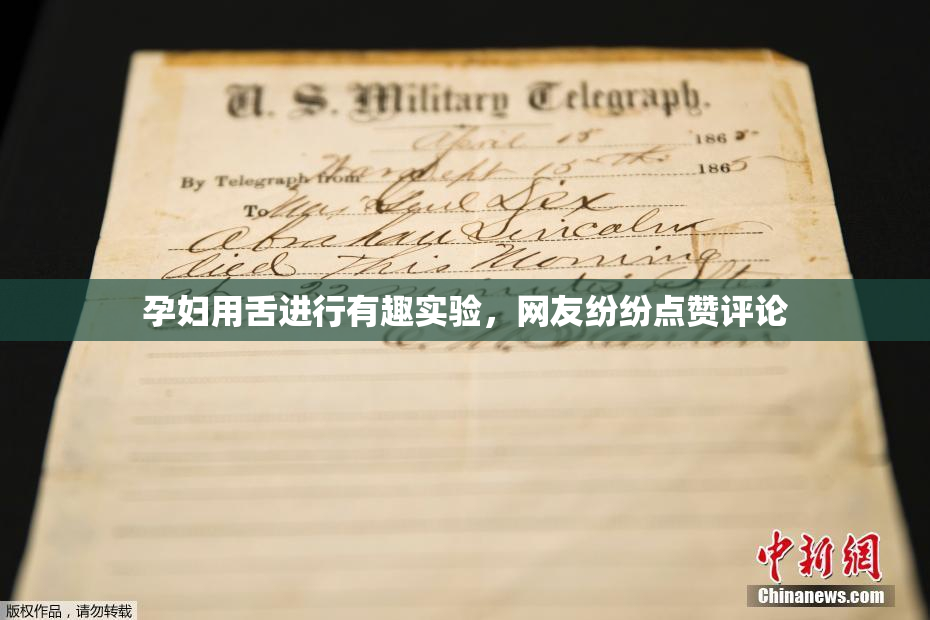 U. S. Military Telegraph.
April 15 1865
By Telegraph from War Dept 15th 1865
To Maj Genl Dix
Abraham Lincoln
died This Morning
at 22 minutes after
孕妇用舌进行有趣实验，网友纷纷点赞评论
E. M. Stanton
中新網
Chinanews.com
版权作品，请勿转载